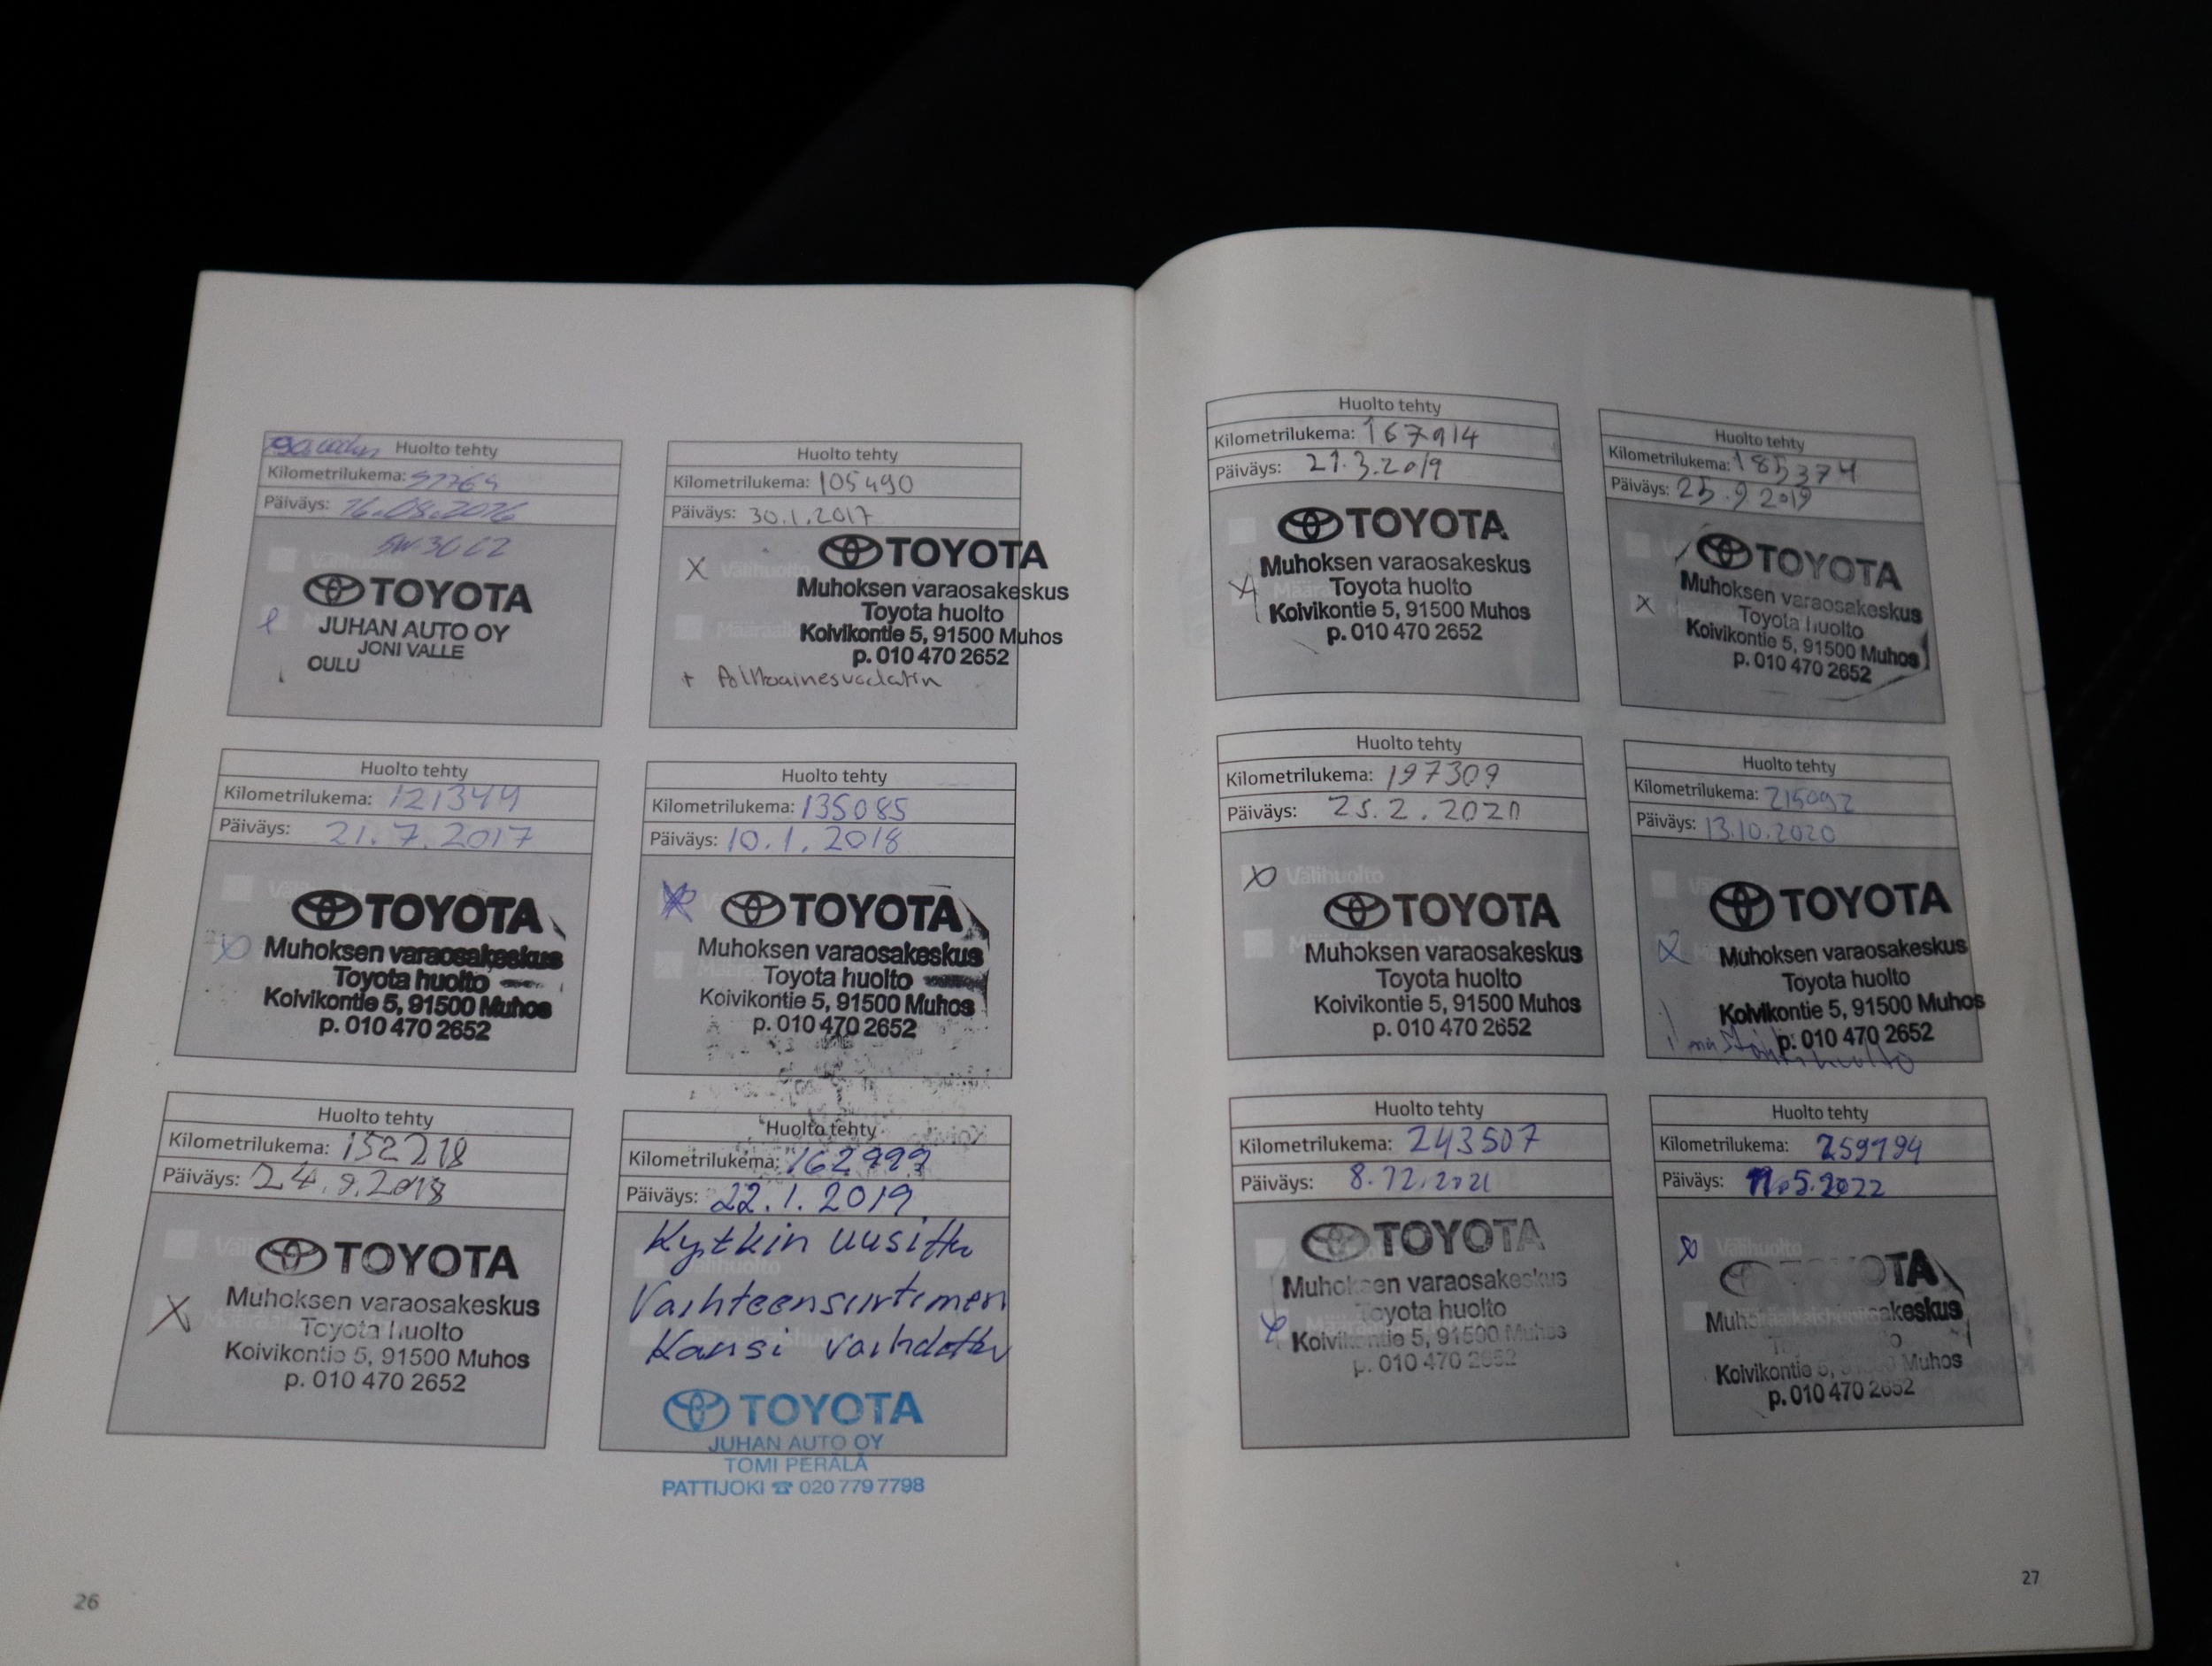 Huolto tehty
Kilometrilukema:
Päiväys: 16.08.2016
5W30 C2
TOYOTA
JUHAN AUTO OY
JONI VALLE
OULU
Huolto tehty
Kilometrilukema: 105490
Päiväys: 30.1.2017
X Välihuolto
TOYOTA
Muhoksen varaosakeskus
Toyota huolto
Koivikontie 5, 91500 Muhos
p. 010 470 2652
+ Polttoainesuodatin
Huolto tehty
Kilometrilukema: 121344
Päiväys: 21.7.2017
TOYOTA
Muhoksen varaosakeskus
Toyota huolto
Koivikontie 5, 91500 Muhos
p. 010 470 2652
Huolto tehty
Kilometrilukema: 135085
Päiväys: 10.1.2018
TOYOTA
Muhoksen varaosakeskus
Toyota huolto
Koivikontie 5, 91500 Muhos
p. 010 470 2652
Huolto tehty
Kilometrilukema: 152218
Päiväys: 24.9.2018
X
TOYOTA
Muhoksen varaosakeskus
Toyota huolto
Koivikontie 5, 91500 Muhos
p. 010 470 2652
Huolto tehty
Kilometrilukema: 162999
Päiväys: 22.1.2019
Kytkin uusittu
Välihuolto
Vaihteensiirtimen
Kansi vaihdettu
TOYOTA
JUHAN AUTO OY
TOMI PERÄLÄ
PATTIJOKI ☎ 020 779 7798
26
Huolto tehty
Kilometrilukema: 167914
Päiväys: 21.3.2019
TOYOTA
Muhoksen varaosakeskus
Toyota huolto
Koivikontie 5, 91500 Muhos
p. 010 470 2652
Huolto tehty
Kilometrilukema: 185374
Päiväys: 25.9.2019
X
TOYOTA
Muhoksen varaosakeskus
Toyota huolto
Koivikontie 5, 91500 Muhos
p. 010 470 2652
Huolto tehty
Kilometrilukema: 197309
Päiväys: 25.2.2020
Välihuolto
TOYOTA
Muhoksen varaosakeskus
Toyota huolto
Koivikontie 5, 91500 Muhos
p. 010 470 2652
Huolto tehty
Kilometrilukema: 215092
Päiväys: 13.10.2020
TOYOTA
Muhoksen varaosakeskus
Toyota huolto
Koivikontie 5, 91500 Muhos
p. 010 470 2652
Huolto tehty
Kilometrilukema: 243507
Päiväys: 8.12.2021
TOYOTA
Muhoksen varaosakeskus
Toyota huolto
Koivikontie 5, 91500 Muhos
p. 010 470 2652
Huolto tehty
Kilometrilukema: 259194
Päiväys: 11.5.2022
Välihuolto
TOYOTA
Koivikontie 5, 91500 Muhos
p. 010 470 2652
27